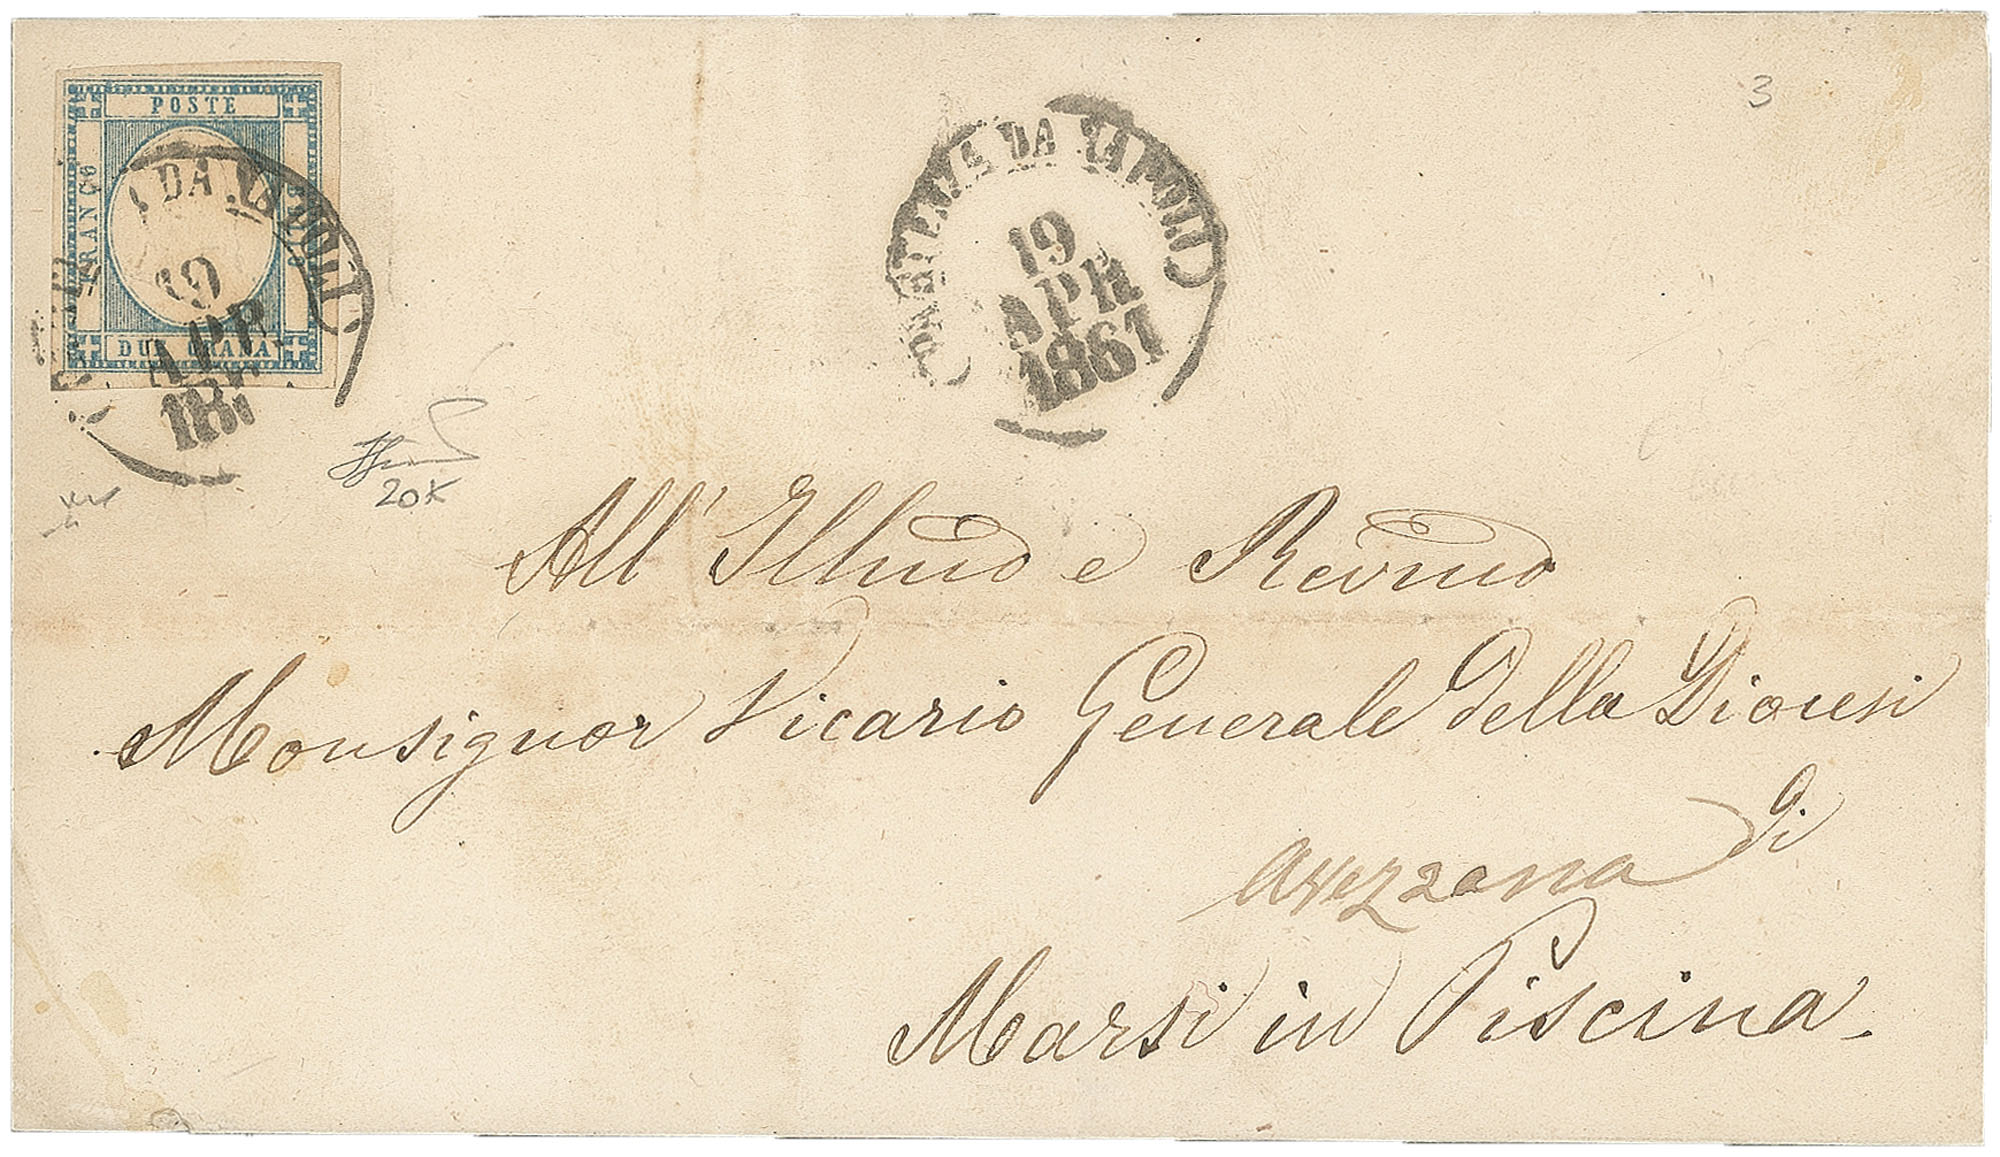 POSTE
FRANCO
BOLLO
DUE GRANA
DA NAPOLI
19
APR
PARTENZA DA NAPOLI
19
APR
1861
3
20K
All'Illmo e Revmo
Monsignor Vicario Generale della Diocesi
di
Avezzana
Marsi in Piscina